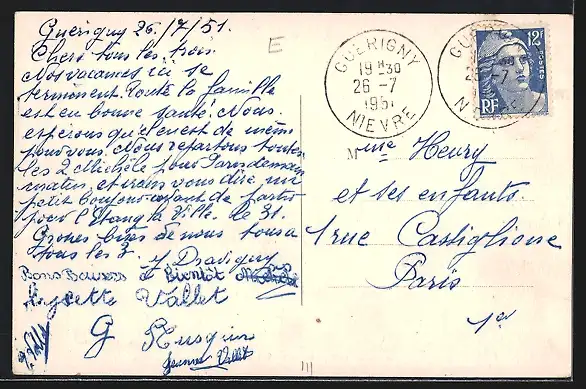 Guerigny 26/7/51.
Chers tous les trois.
Nos vacances ici se
terminent. Toute la famille
est en bonne santé. Nous
espérons qu'il en est de même
pour vous. Nous repartons toutes
les 2 Michèle pour Paris demain
matin, et irons vous dire un
petit bonjour avant de partir
pour l'Etang la Ville. le 31.
Grosses bises de nous tous à
tous les 3.
Bons Baisers à Bientôt
Lysette Vallet
G
E
GUERIGNY
19 H 30
26 - 7
1951
NIEVRE
12F
POSTES
RF
Mme Henry
et ses enfants.
1 rue Castiglione
Paris
1er